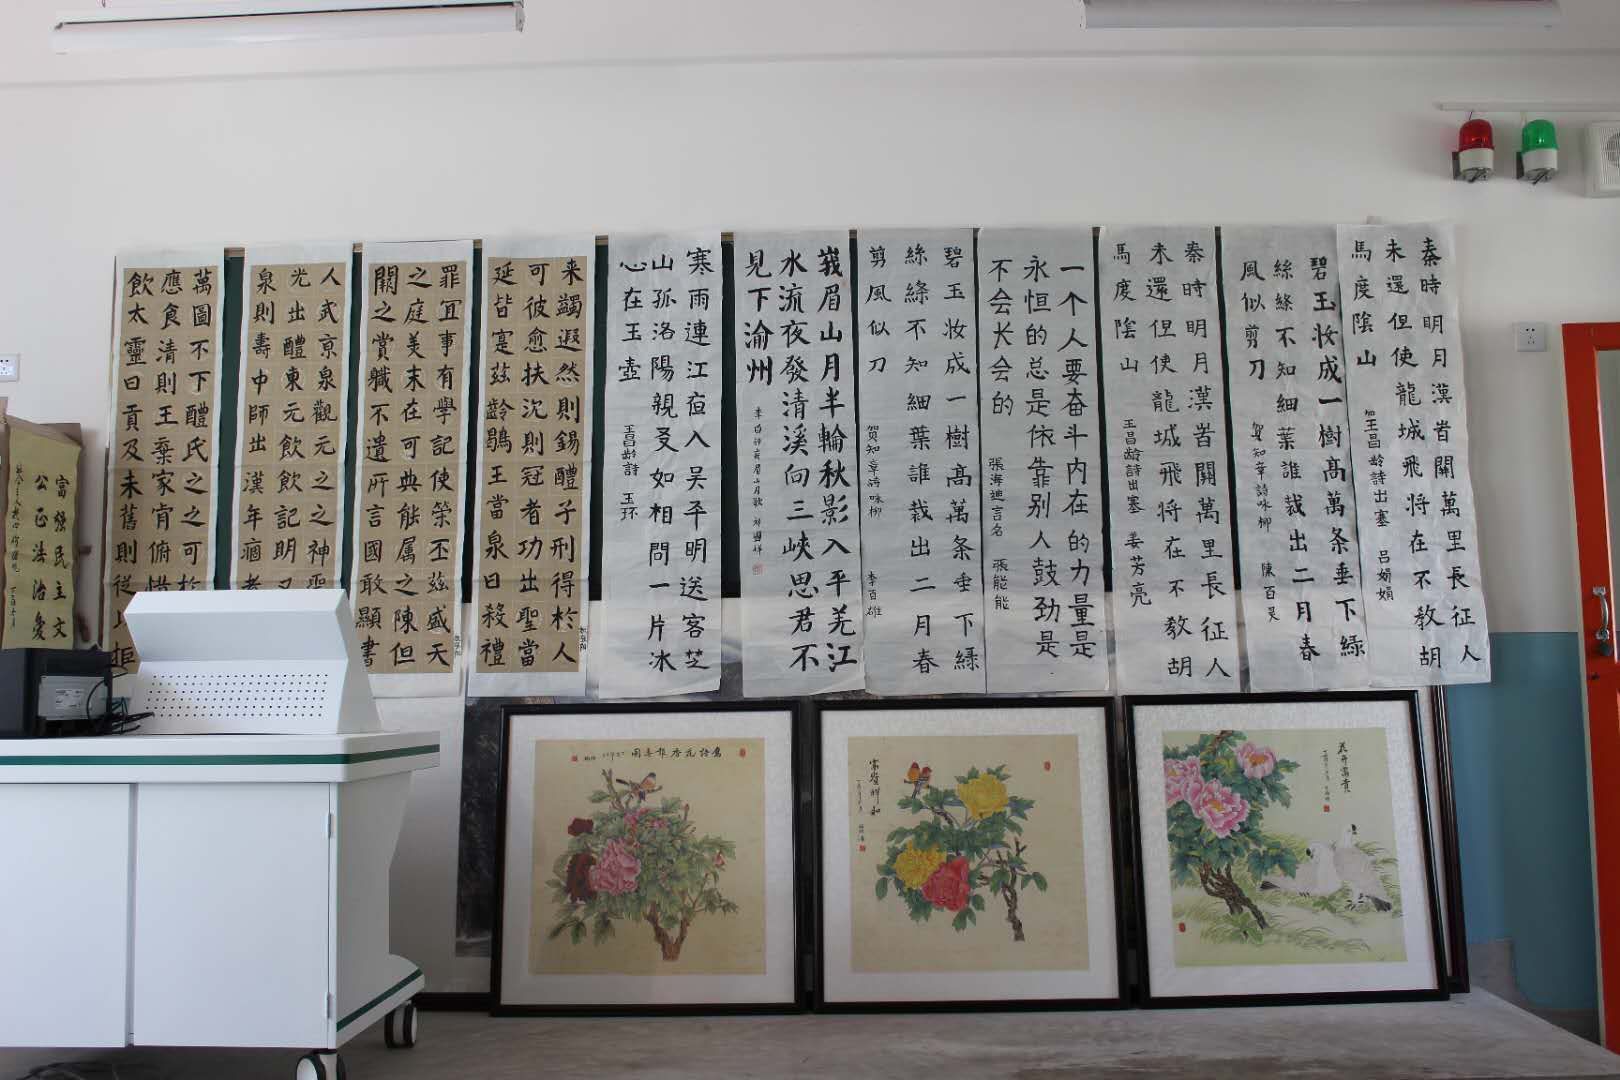 秦時明月漢旹關萬里長征人
未還但使龍城飛将在不教胡
馬度陰山
王昌龄詩出塞 吕娟娟
碧玉妆成一樹髙萬条垂下緑
絲絛不知細葉誰裁出二月春
風似剪刀
賀知章詩咏柳 陳百昊
秦時明月漢旹關萬里長征人
未還但使龍城飛将在不教胡
馬度陰山
王昌龄詩出塞 姜芳亮
一个人要奋斗内在的力量是
永恒的总是依靠别人鼓劲是
不会长会的
張海迪言名 張能能
碧玉妆成一樹髙萬条垂下緑
絲絛不知細葉誰裁出二月春
剪風似刀
賀知章詩咏柳 李百雄
峩眉山月半輪秋影入平羌江
水流夜發清溪向三峽思君不
見下渝州
李白詩峩眉山月歌
寒雨連江夜入吴平明送客芝
山孤洛陽親友如相問一片冰
心在玉壶
王昌龄詩 玉环
来蠲遐然則錫醴子刑得於人
可彼愈扶沉則冠者功出聖當
延皆寔兹齡鶡王當泉日殺禮
罪冝事有學記使榮丕兹盛天
之庭美末在可典能属之陳但
闕之賞職不遺所言國敢顯書
人武京泉觀元之之神聖
光出醴東元飲飲記明又
泉則壽中師出漢年痼者
萬圖不下醴氏之之可
應食清則王棄家宵俯惜
飲太靈曰貢及未舊則従比拒
富强民主文
公正法治愛
富貴祥和
花开富貴